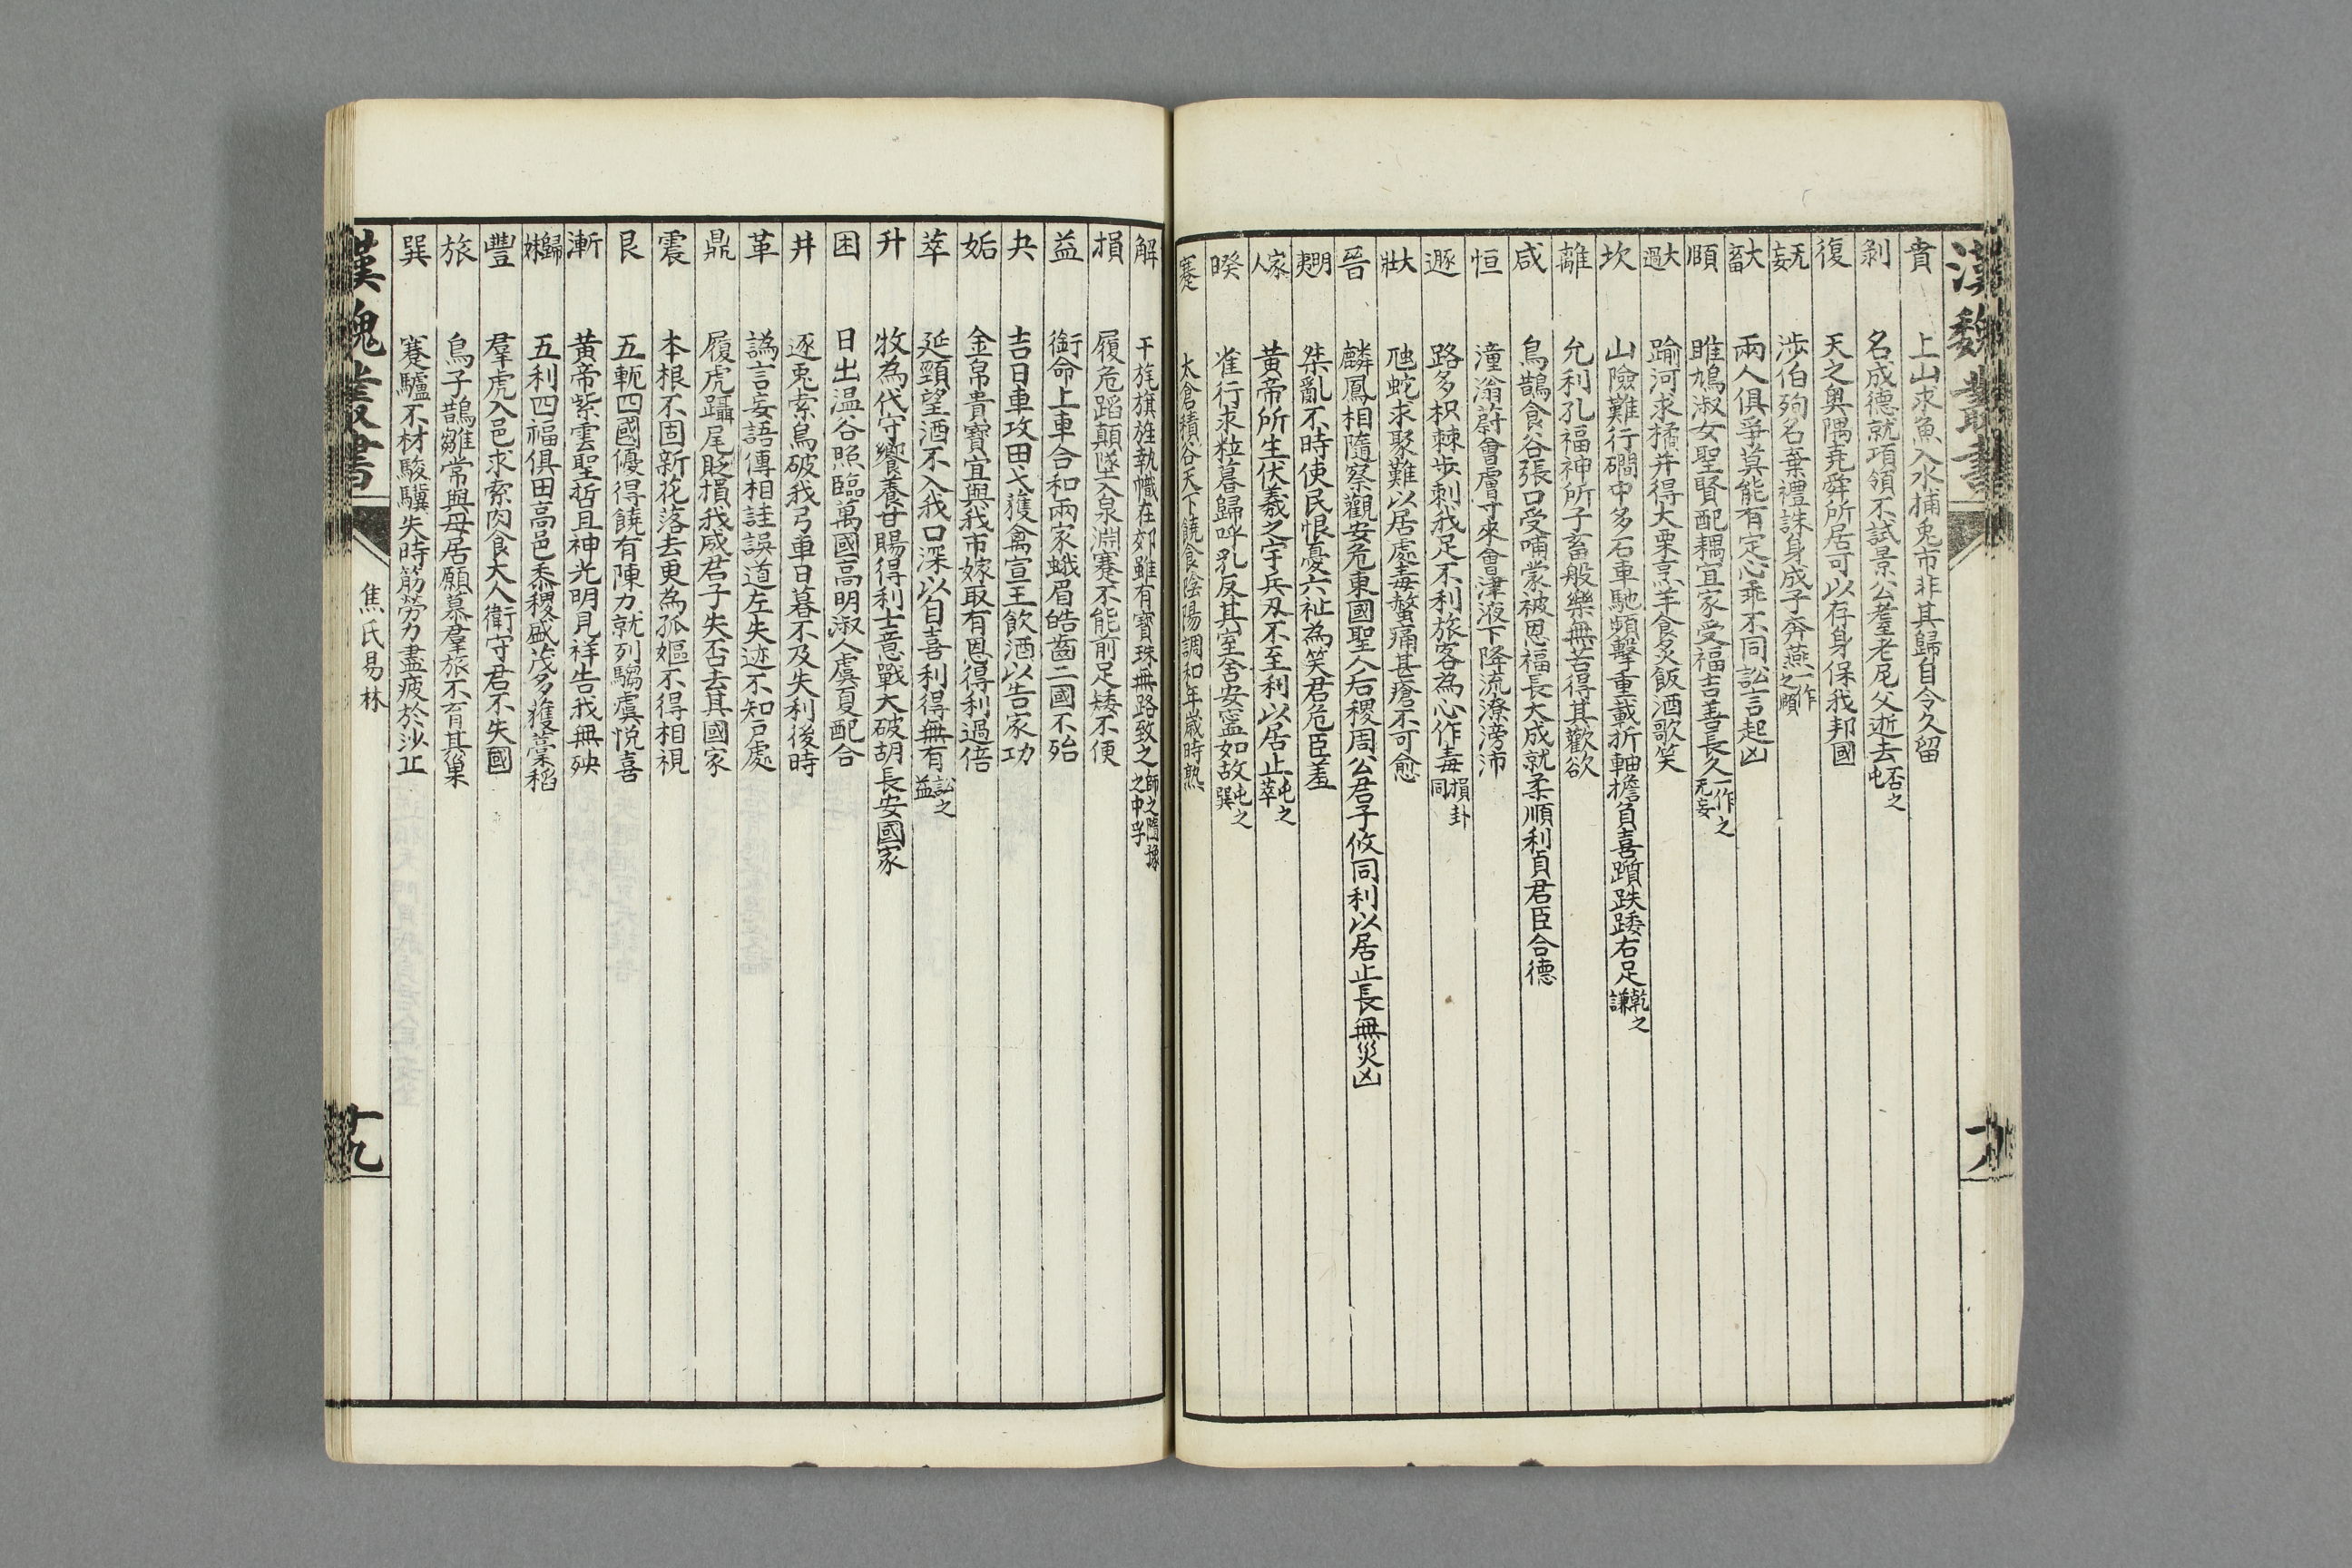 漢魏叢書
賁　上山求魚入水捕兎市非其歸自令久留
剝　名成德就項領不試景公耋老尼父逝去否之屯
復　天之奧隅堯舜所居可以存身保我邦國
无妄　涉伯殉名棄禮誅身成子奔燕一作之頤
大畜　兩人俱爭莫能有定心乖不同訟言起凶
頤　雎鳩淑女聖賢配耦宜家受福吉善長久一作之无妄
大過　踰河求橘并得大栗烹羊食炙飯酒歌笑
坎　山險難行磵中多石車馳轊擊重載折軸擔負善躓跌踒右足乾之謙
離　允利孔福神所子畜般樂無苦得其歡欲
咸　烏鵲食谷張口受哺蒙被恩福長大成就柔順利貞君臣合德
恒　潼滃蔚薈膚寸來會津液下降流潦滂沛
遯　路多枳棘步刺我足不利旅客為心作毒損卦同
大壯　虺蛇求聚難以居處毒螫痛甚瘡不可愈
晉　麟鳳相隨察觀安危東國聖人后稷周公君子攸同利以居止長無災凶
明夷　桀亂不時使民恨憂六祉為笑君危臣羞
家人　黃帝所生伏羲之宇兵刃不至利以居止屯之萃
暌　隹行求粒暮歸呼孔反其室舍安寧如故屯之巽
蹇　太倉積谷天下饒食陰陽調和年歲時熟
十九
解　干旄旗旌執幟在郊雖有寶珠無路致之師之隨豫之中孚
損　履危蹈顛墜入泉淵蹇不能前足矮不便
益　銜命上車合和兩家蛾眉皓齒二國不殆
夬　吉日車攻田弋獲禽宣王飲酒以告家功
姤　金帛貴寶宜與我市嫁取有恩得利過倍
萃　延頸望酒不入我口深以自喜利得無有訟之益
升　牧為代守饗養甘賜得利士意戰大破胡長安國家
困　日出溫谷照臨萬國高明淑人虞夏配合
井　逐兎索烏破我弓車日暮不及失利後時
革　譌言妄語傳相註誤道左失迹不知戶處
鼎　履虎躡尾貶損我威君子失否去其國家
震　本根不固新花落去更為孤嫗不得相視
艮　五軛四國優得饒有陳力就列騶虞悅喜
漸　黃帝紫雲聖哲且神光明見祥告我無殃
歸妹　五利四福俱田高邑黍稷盛茂多獲藁稻
豐　羣虎入邑求索肉食大人衛守君不失國
旅　烏子鵲雛常與母居願慕羣旅不育其巢
巽　蹇驢不材駿驥失時筋勞力盡疲於沙丘
漢魏叢書
焦氏易林
十九